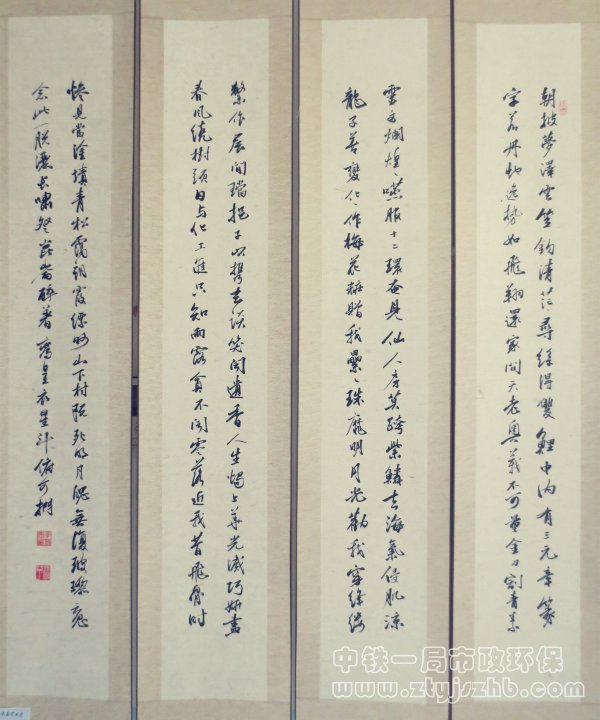 朝披夢澤雲笠釣清茫尋絲得雙鯉中內有三元章篆
字若丹蛇逸勢如飛翔還家問天老奧義不可量金刀割青素
文爛煌々嚥服十二環奄見仙人房莫跨紫鱗去海氣侵肌涼
龍子善變化々作梅花粧贈我纍々珠靡明月光勸我穿絳縷
繫作間璫挹子以携去談笑聞遺香人生燭上華光滅巧妍盡
春風繞樹頭日与化工進只知雨露貪不聞零落近我昔飛骨时
慘見當塗墳青松靄朝霞縹緲山下村既死明月魄無復玻瓈魂
念此一脱灑長嘯登崑崙醉著鸞皇衣星斗俯可捫
中铁一局市政环保
www.ztyjszhb.com